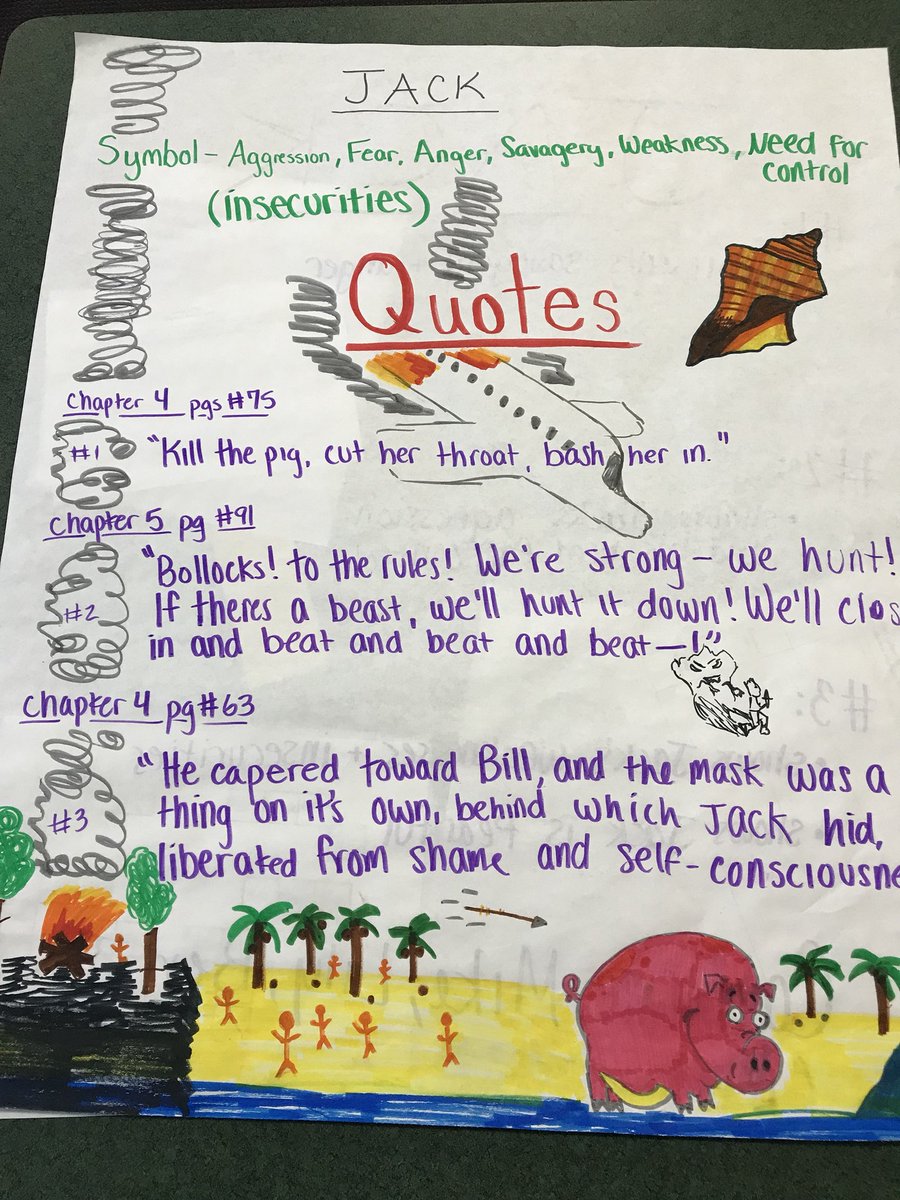 JACK
Symbol - Aggression, Fear, Anger, Savagery, Weakness, Need for
control
(insecurities)
Quotes
Chapter 4 pgs #75
#1 "Kill the pig, cut her throat, bash her in."
Chapter 5 pg #91
"Bollocks! to the rules! We're strong - we hunt!
#2 If theres a beast, we'll hunt it down! We'll clos
in and beat and beat and beat — !"
Chapter 4 pg #63
"He capered toward Bill, and the mask was a
#3 thing on it's own, behind which Jack hid,
liberated from shame and self-consciousne